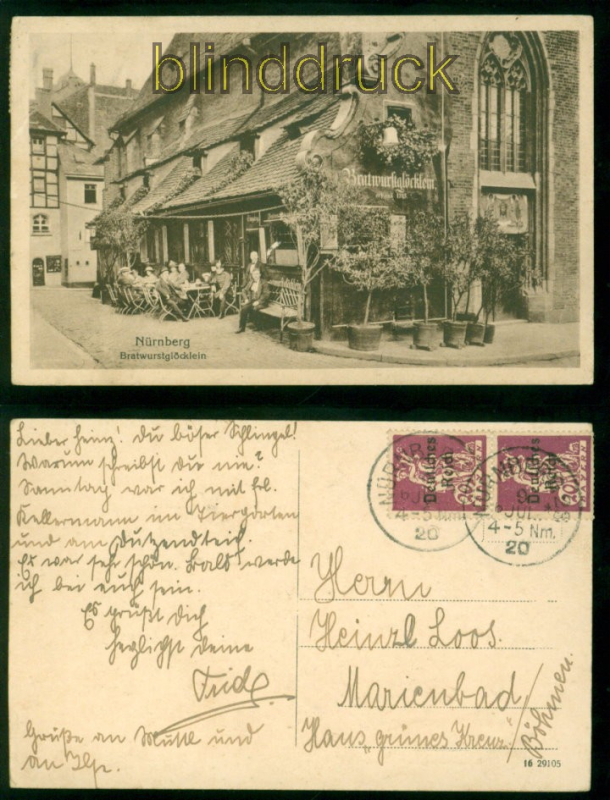 blinddruck
Bratwurstglöcklein
Nürnberg
Bratwurstglöcklein
Lieber Heinz! Du böser Schlingel!
Warum schreibst Du nie?
Sonntag war ich mit Frl.
Kellermann im Tiergarten
und am Dutzendteich.
Es war sehr schön. Bald werde
ich bei euch sein.
Es grüßt Dich
herzlichst deine
Grüße an Muttl und
Deutsches Reich
Deutsches Reich
20
20
NÜRNBERG
4-5 Nm.
20
NÜRNBERG
4-5 Nm.
20
Herrn
Heinzl Loos.
Marienbad
Haus „grünes Kreuz"
Böhmen.
16 29105